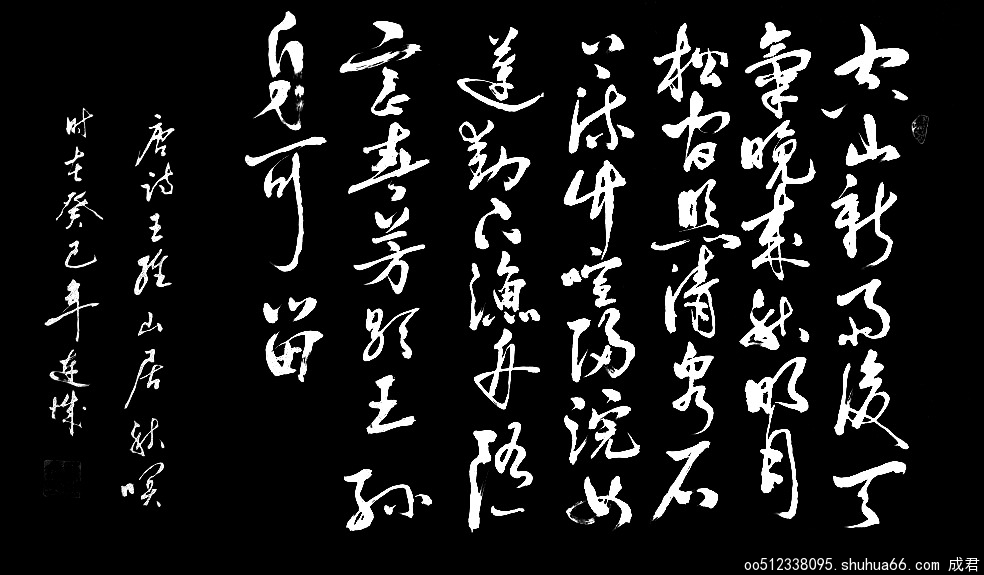 空山新雨後天
氣晚來秋明月
松間照清泉石
上流竹喧歸浣女
蓮動下漁舟隨
意春芳歇王孫
自可留
唐诗王維山居秋暝
时在癸巳年连
oo512338095.shuhua66.com 成君